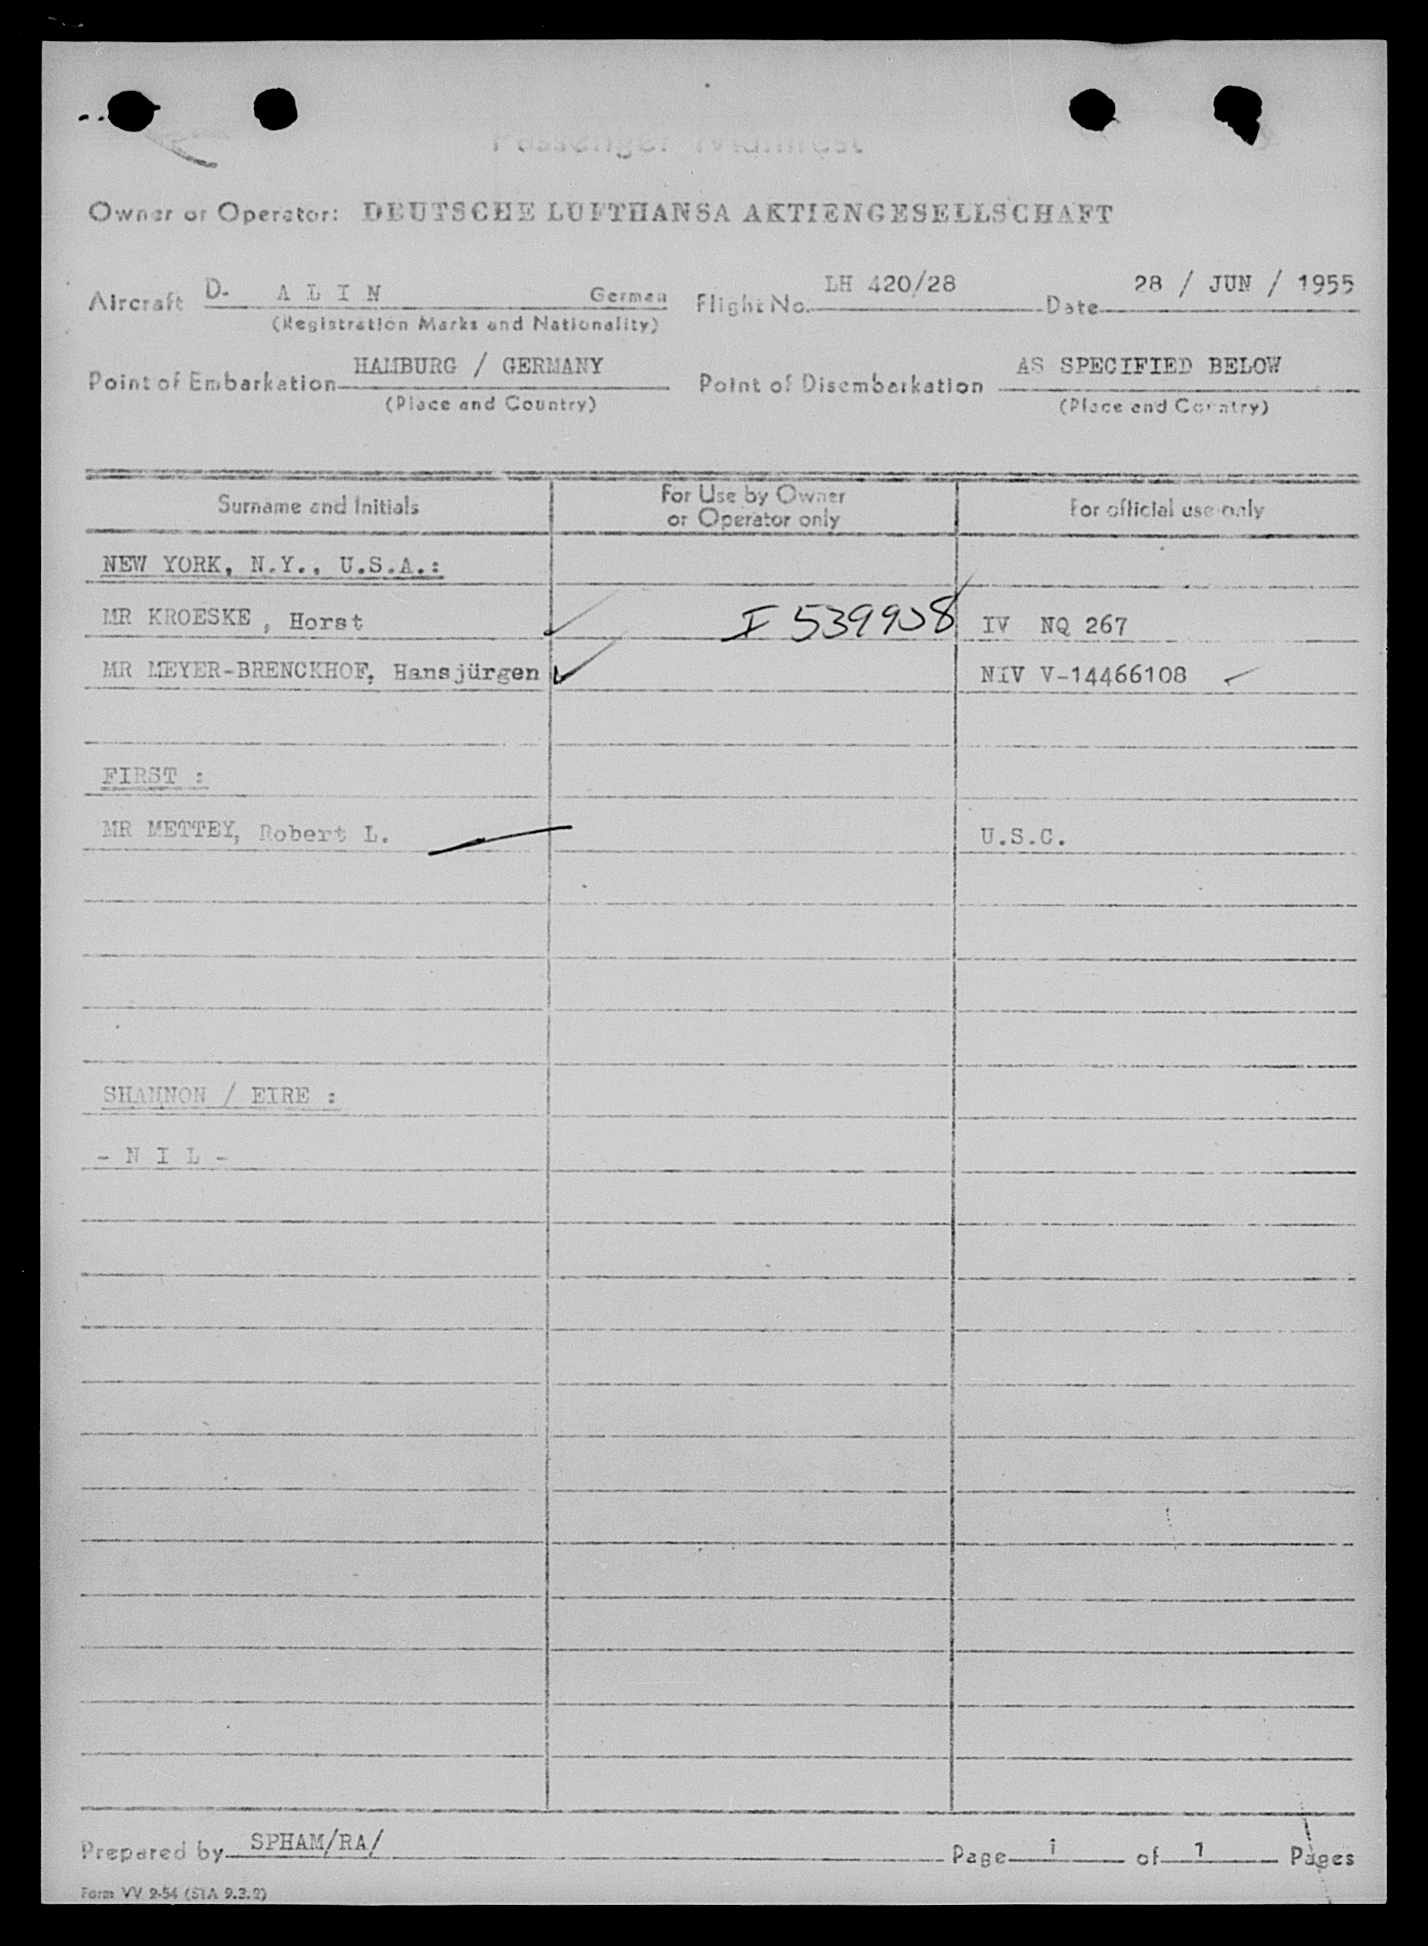 Passenger Manifest
Owner or Operator: DEUTSCHE LUFTHANSA AKTIENGESELLSCHAFT
Aircraft D- A L I N German Flight No. LH 420/28 Date 28 / JUN / 1955
(Registration Marks and Nationality)
Point of Embarkation HAMBURG / GERMANY Point of Disembarkation AS SPECIFIED BELOW
(Place and Country) (Place and Country)
Surname and Initials For Use by Owner or Operator only For official use only
NEW YORK, N.Y., U.S.A.:
MR KROESKE , Horst I 539908 IV NQ 267
MR MEYER-BRENCKHOF, Hansjürgen NIV V-14466108
FIRST :
MR METTEY, Robert L. U.S.C.
SHANNON / EIRE :
- N I L -
Prepared by SPHAM/RA/ Page 1 of 1 Pages
Form VV 2-54 (STA 9.3.2)